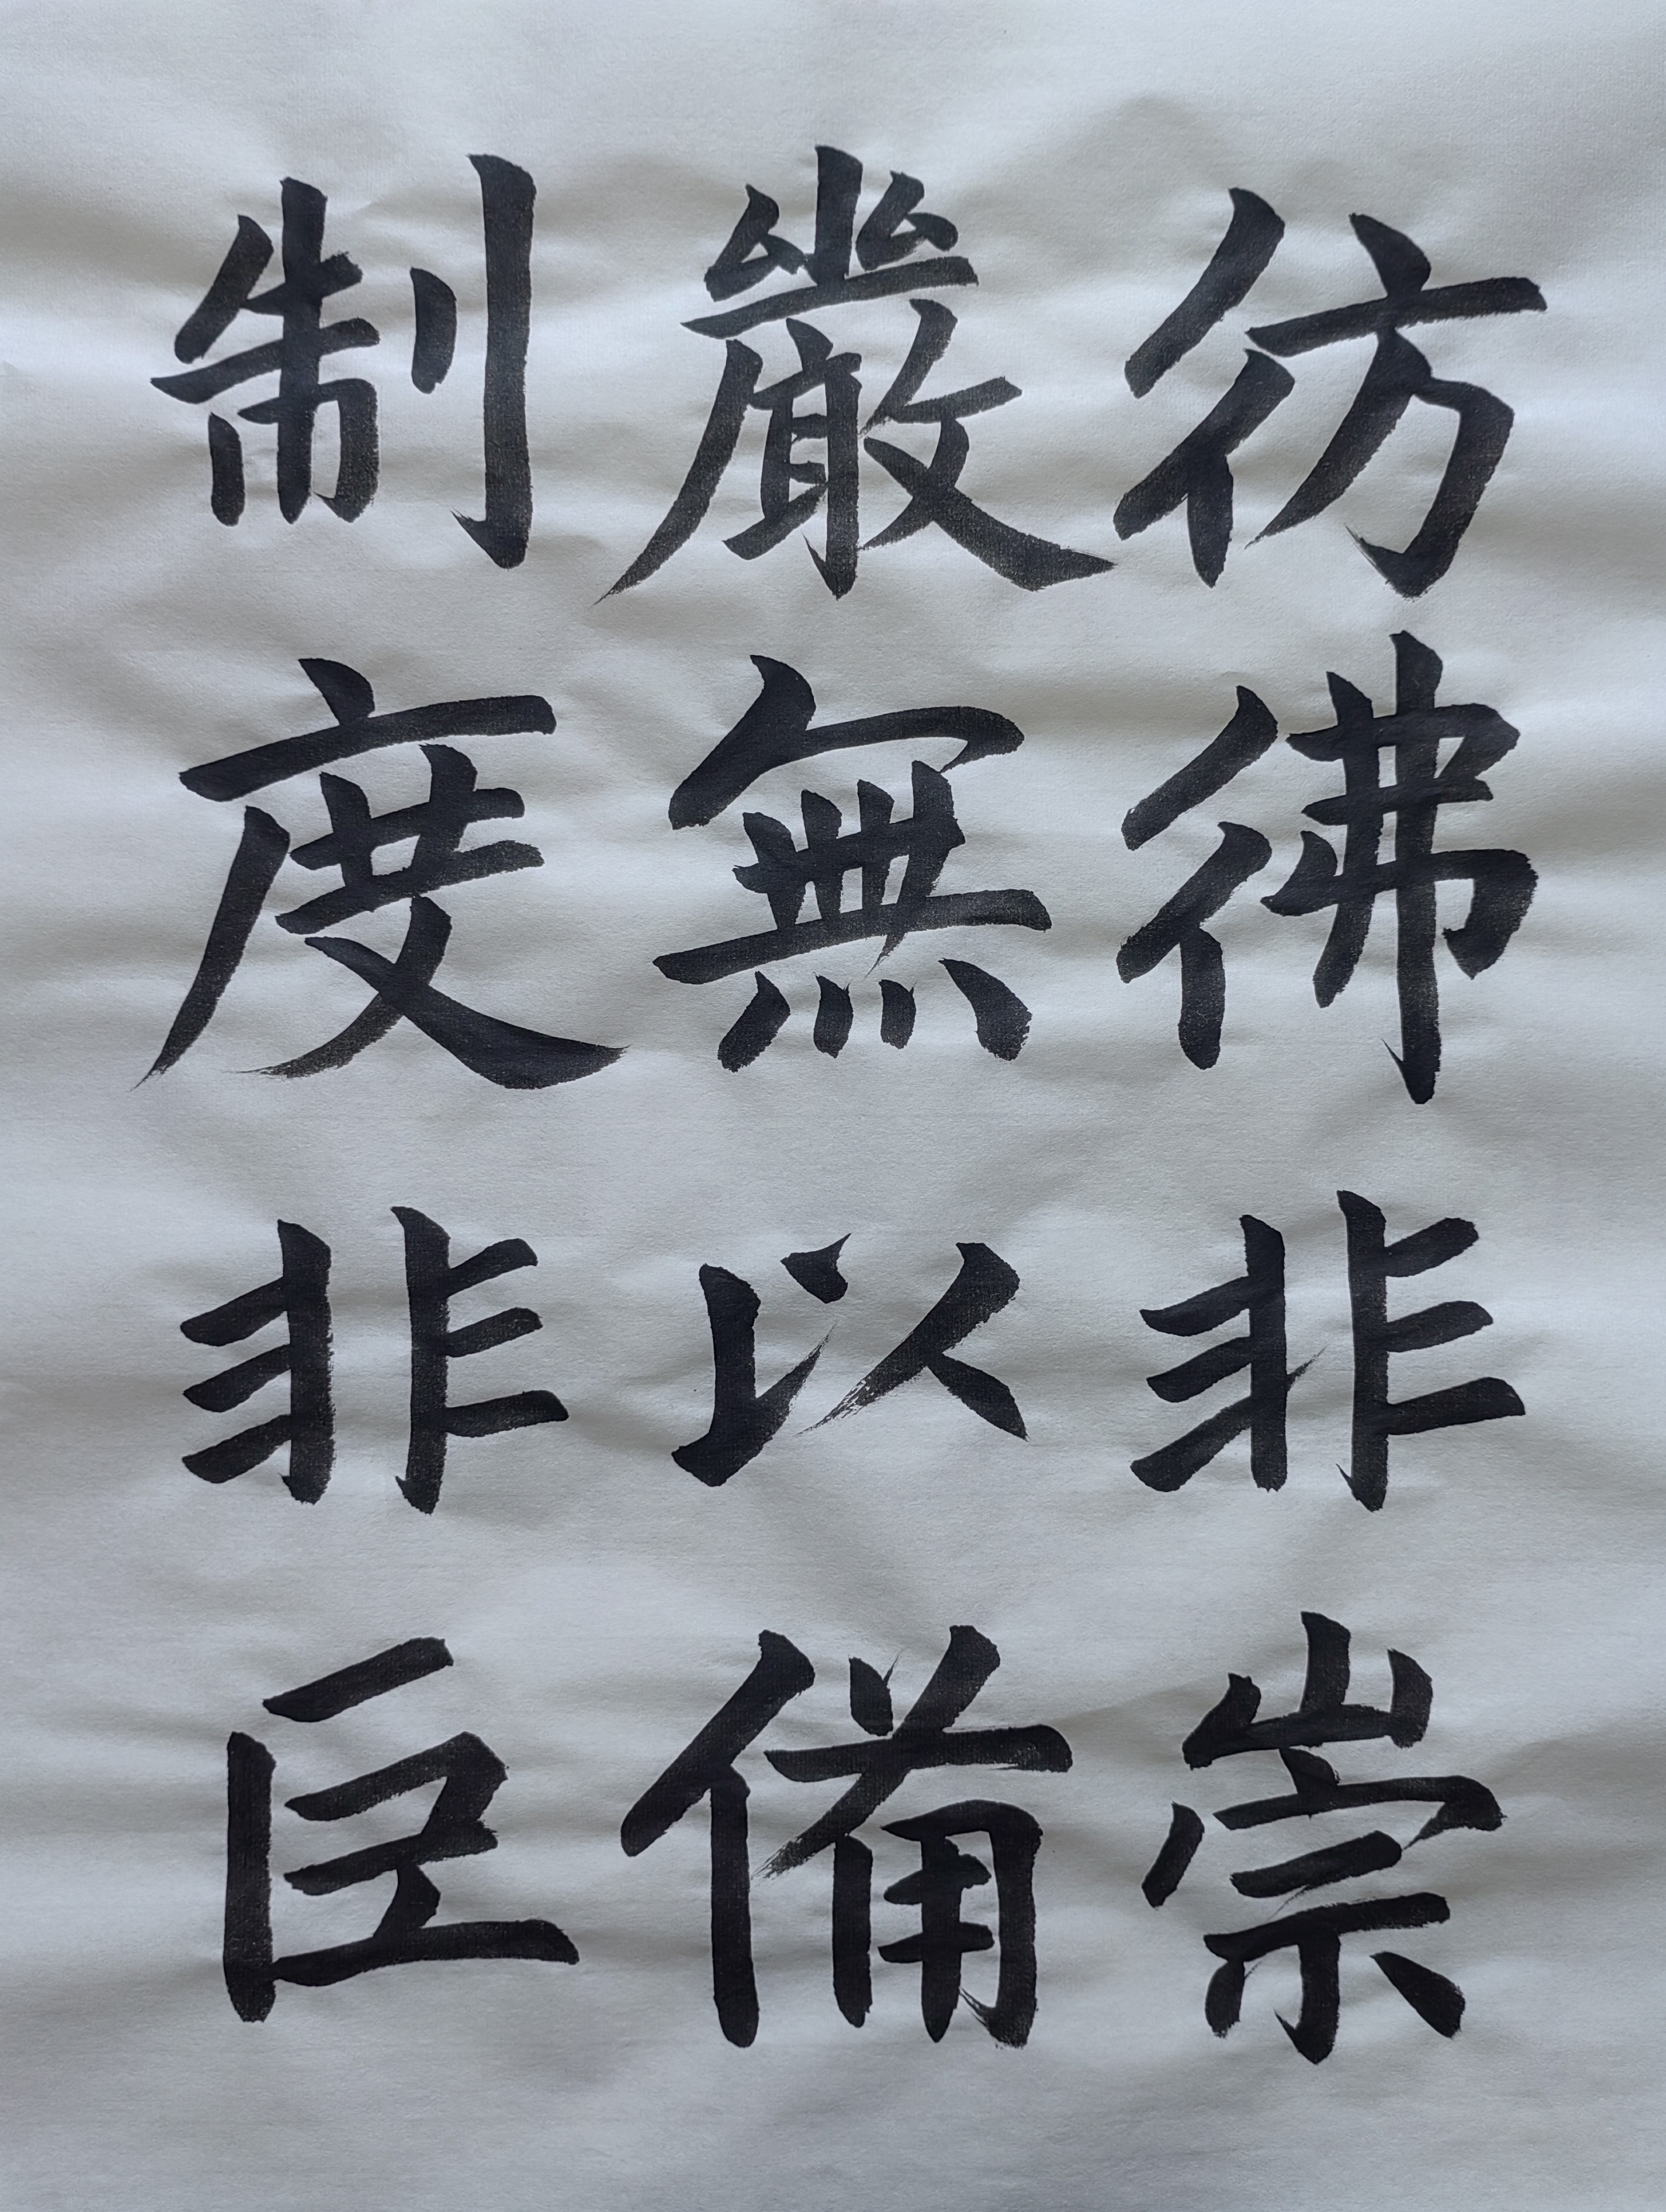 彷彿非崇
嚴無以備
制度非巨